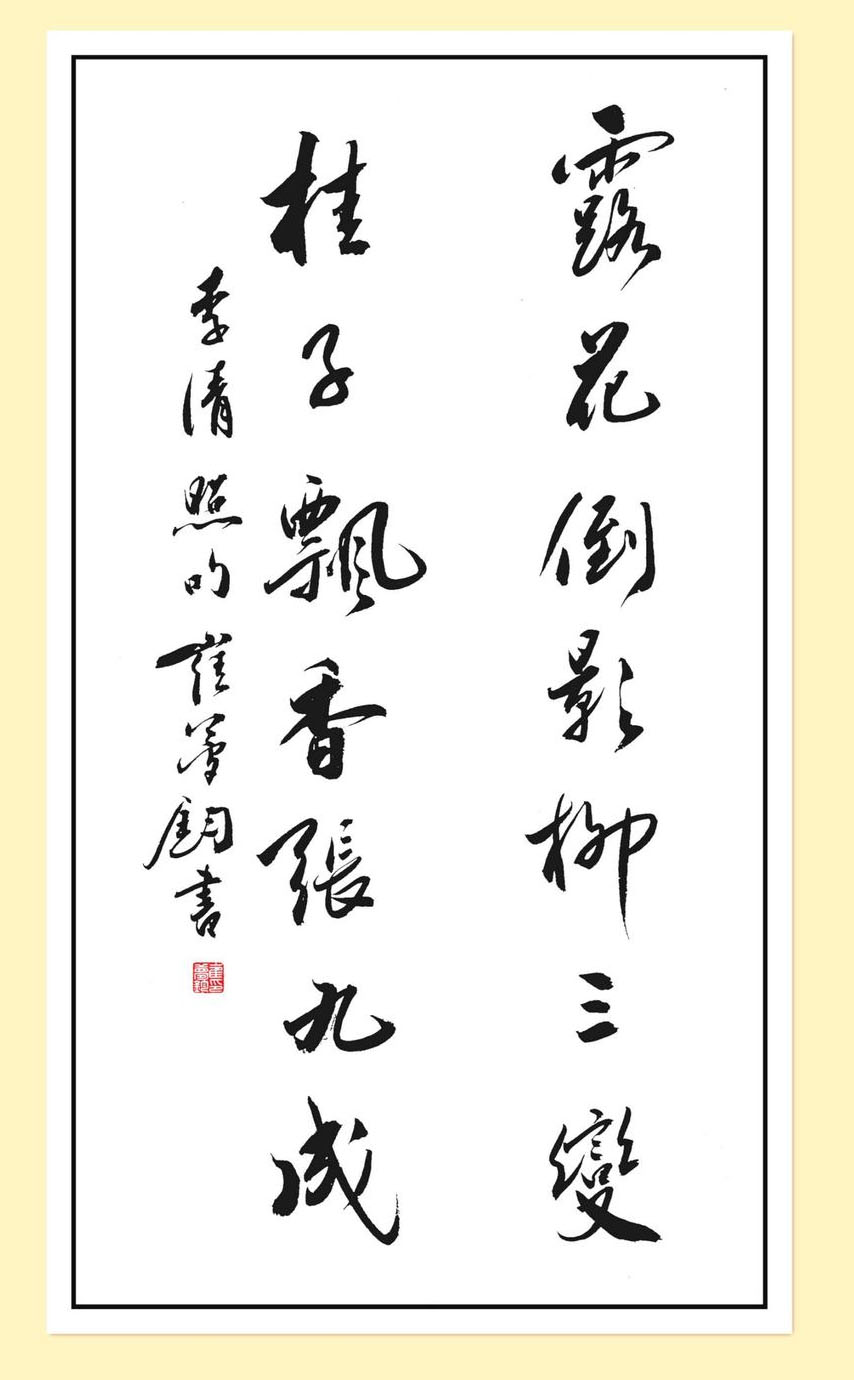 露花倒影柳三變
桂子飄香張九成
李清照句崔夢鈞書